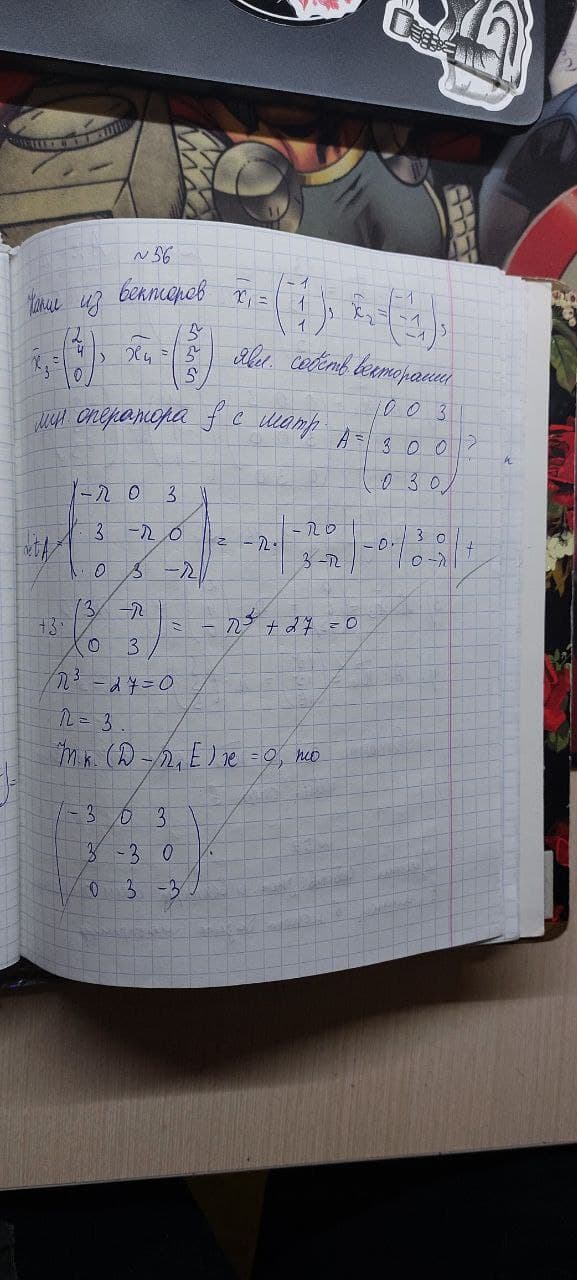 №56
Какие из векторов x̄₁ = (-1 1 1), x̄₂ = (-1 -1 -1),
x̄₃ = (2 4 0), x̄₄ = (5 5 5) явл. собств. векторами
оператора f с матр. A = (0 0 3 3 0 0 0 3 0)?
det A = |-λ 0 3 3 -λ 0 0 3 -λ| = -λ · |-λ 0 3 -λ| - 0 · |3 0 0 -λ| +
+3 · (3 -λ 0 3) = -λ³ + 27 = 0
λ³ - 27 = 0
λ = 3.
Т.к. (D - λ₁E) x = 0, то
(-3 0 3 3 -3 0 0 3 -3) ·